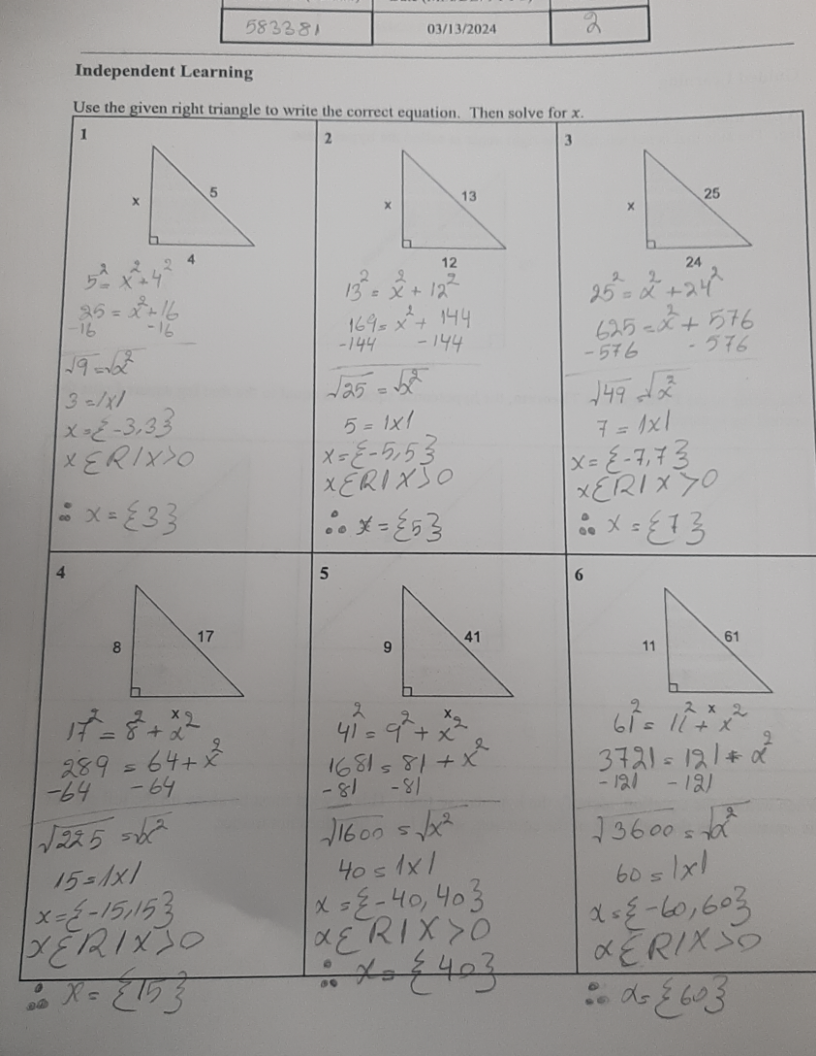 583381 03/13/2024 2
Independent Learning
Use the given right triangle to write the correct equation. Then solve for x.
1
x 5
4
5² = x² + 4²
25 = x² + 16
-16 -16
√9 = √x²
3 = |x|
x = {-3,3}
x ∈ R | x > 0
∴ x = {3}
2
x 13
12
13² = x² + 12²
169 = x² + 144
-144 -144
√25 = √x²
5 = |x|
x = {-5,5}
x ∈ R | x > 0
∴ x = {5}
3
x 25
24
25² = x² + 24²
625 = x² + 576
-576 -576
√49 = √x²
7 = |x|
x = {-7,7}
x ∈ R | x > 0
∴ x = {7}
4
8 17
x
17² = 8² + x²
289 = 64 + x²
-64 -64
√225 = √x²
15 = |x|
x = {-15,15}
x ∈ R | x > 0
∴ x = {15}
5
9 41
x
41² = 9² + x²
1681 = 81 + x²
-81 -81
√1600 = √x²
40 = |x|
x = {-40,40}
x ∈ R | x > 0
∴ x = {40}
6
11 61
x
61² = 11² + x²
3721 = 121 + x²
-121 -121
√3600 = √x²
60 = |x|
x = {-60,60}
x ∈ R | x > 0
∴ x = {60}